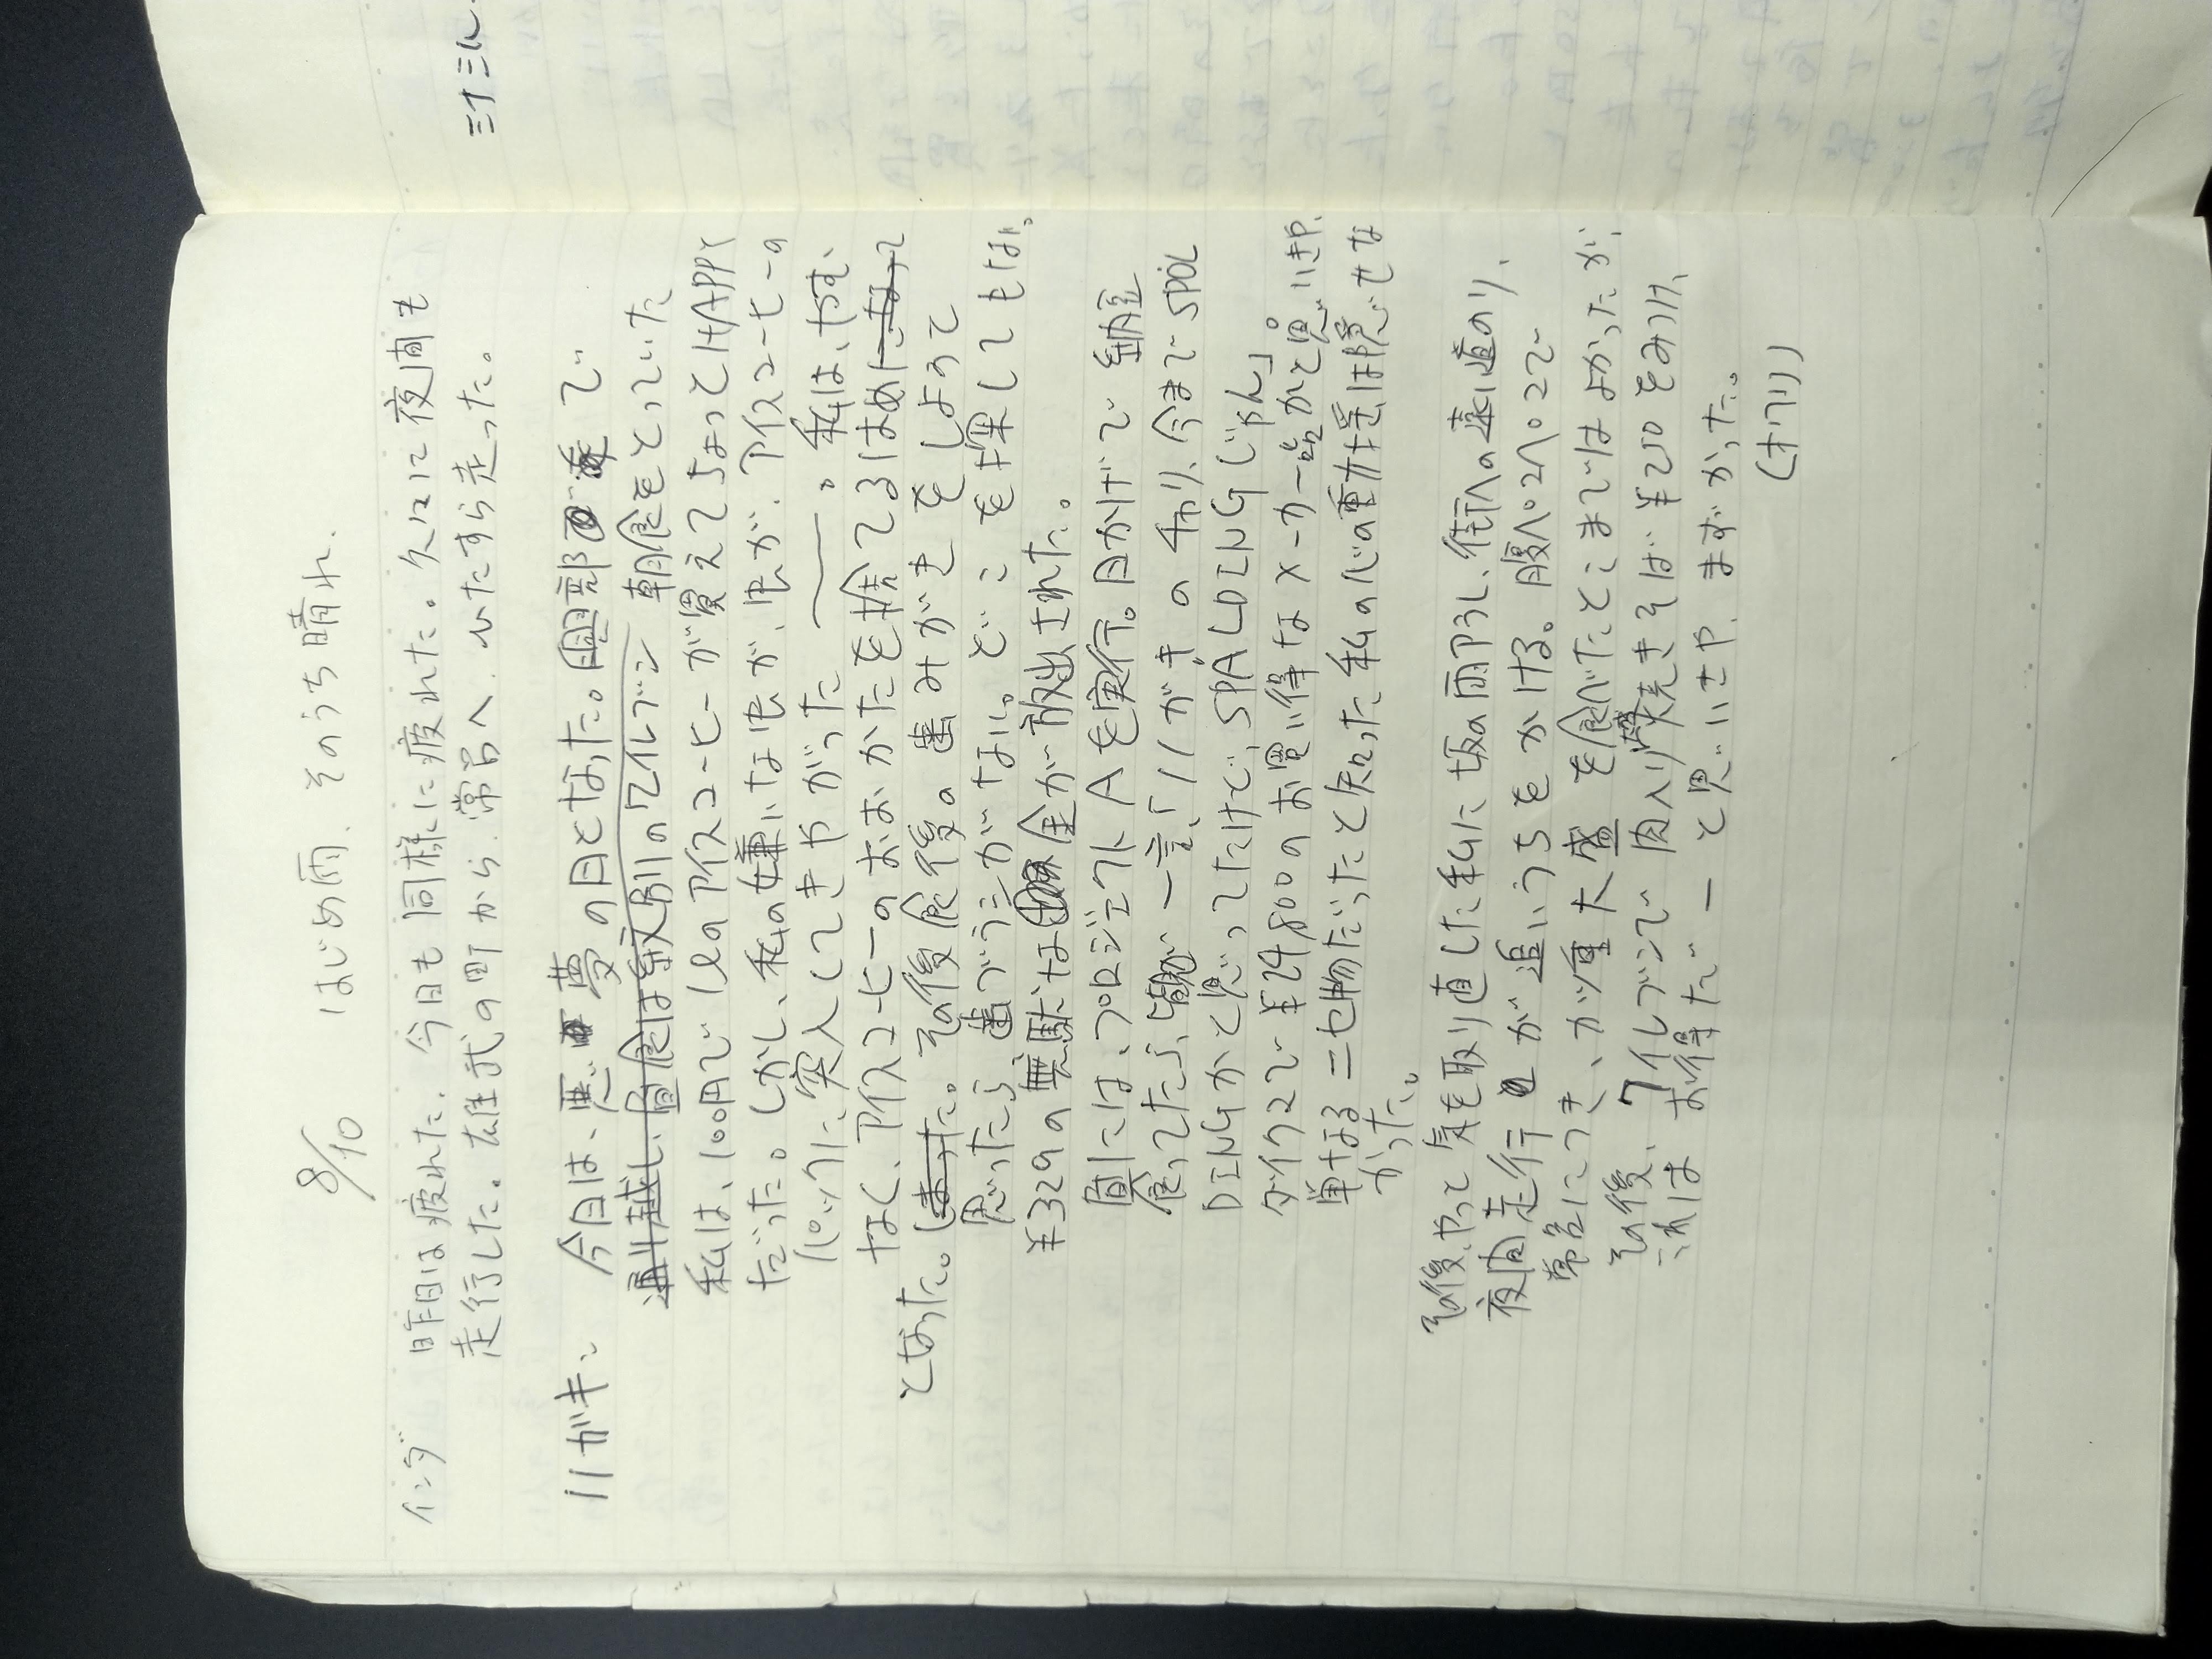 8/10 はじめ雨、そのうち晴れ、
インダ 昨日は疲れた、今日も同様に疲れた。久々に夜間も
走行した。雄武の町から、常呂へ、ひたすら走った。
ハガキン 今日は、悪夢の日となった。興部で
通り越し、昼食は紋別のワイルブン 朝食をとっていた
私は、100円で1ℓのアイスコーヒーが買えてちょっとHAPPY
だった。しかし、私の嫌いな虫が、虫が、アイスコーヒーの
パックに、突入してきやがった ――。私は、やむ、
なく、アイスコーヒーのおおかたを捨てるはめになって
となった。しまった。その後食後の歯みがきをしようと
思ったら歯ブラシがない。どこを探してもない。
¥329の無駄な金が放出された。
昼には、プロジェクトAを実行。日かげで納豆
食ってたら、一言、「ハガキのチャリ、今までSPOL
DINGかと思ってたけど、SPALDINGじゃん」。
ダイクマで¥24,800のお買い得なメーカー品かと思いきや、
単なるニセ物だったと知った私の心の動揺は隠せな
かった。
その後、やっと気を取り直した私に坂の雨降らし、街への遠のり、
夜間走行が追いうちをかける。腹ペコペコで
常呂につき、カツ重大盛を食べたとこまではよかったが、
その後、7イレブンで肉入り焼きそば¥250をみつけ、
これはお得だ―と思いきや、まずかった。
(オワリ)
ミナミル